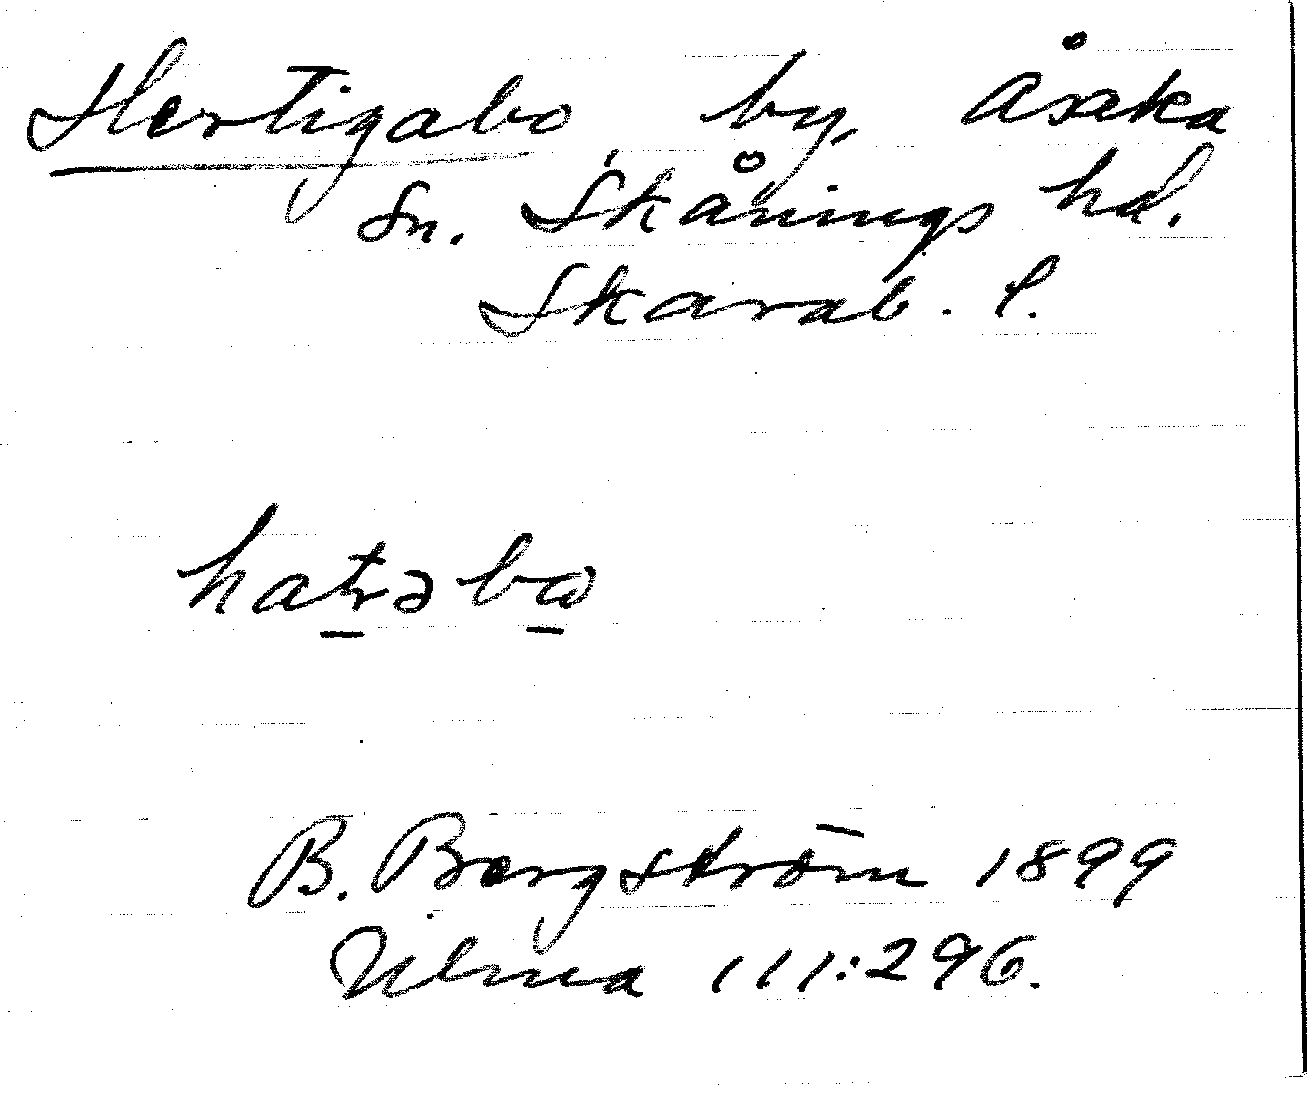 Hertigabo by, Åsaka
Sn. Skånings hd.
Skarab. l.
hatrəbω
B. Bergström 1899
Ulma 111:296.